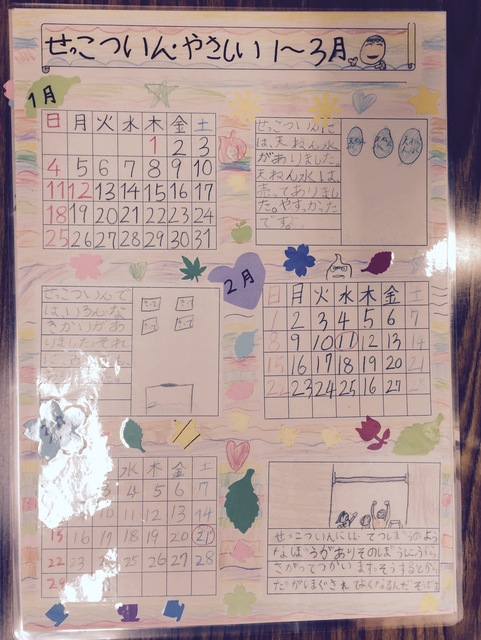 せっこついん・やさしい 1〜3月
1月
日 月 火 水 木 金 土
1 2 3
4 5 6 7 8 9 10
11 12 13 14 15 16 17
18 19 20 21 22 23 24
25 26 27 28 29 30 31
せっこついんに
は、天ねん水
がありました。
天ねん水は、
売ってありまし
た。やすかった
です。
2月
せっこついんで
は、いろんな
きかいがあ
りました。それ
日 月 火 水 木 金 土
1 2 3 4 5 6 7
8 9 10 11 12 13 14
15 16 17 18 19 20 21
22 23 24 25 16 27 28
水 木 金 土
4 5 6 7
10 11 12 13 14
15 16 17 18 19 20 21
22 23 25 26 27 28
29
せっこついんには、てつぼうのよう
なぼうがありそのぼうに
さがってつかいます。そうするとから
だがほぐされてよくなるんだ